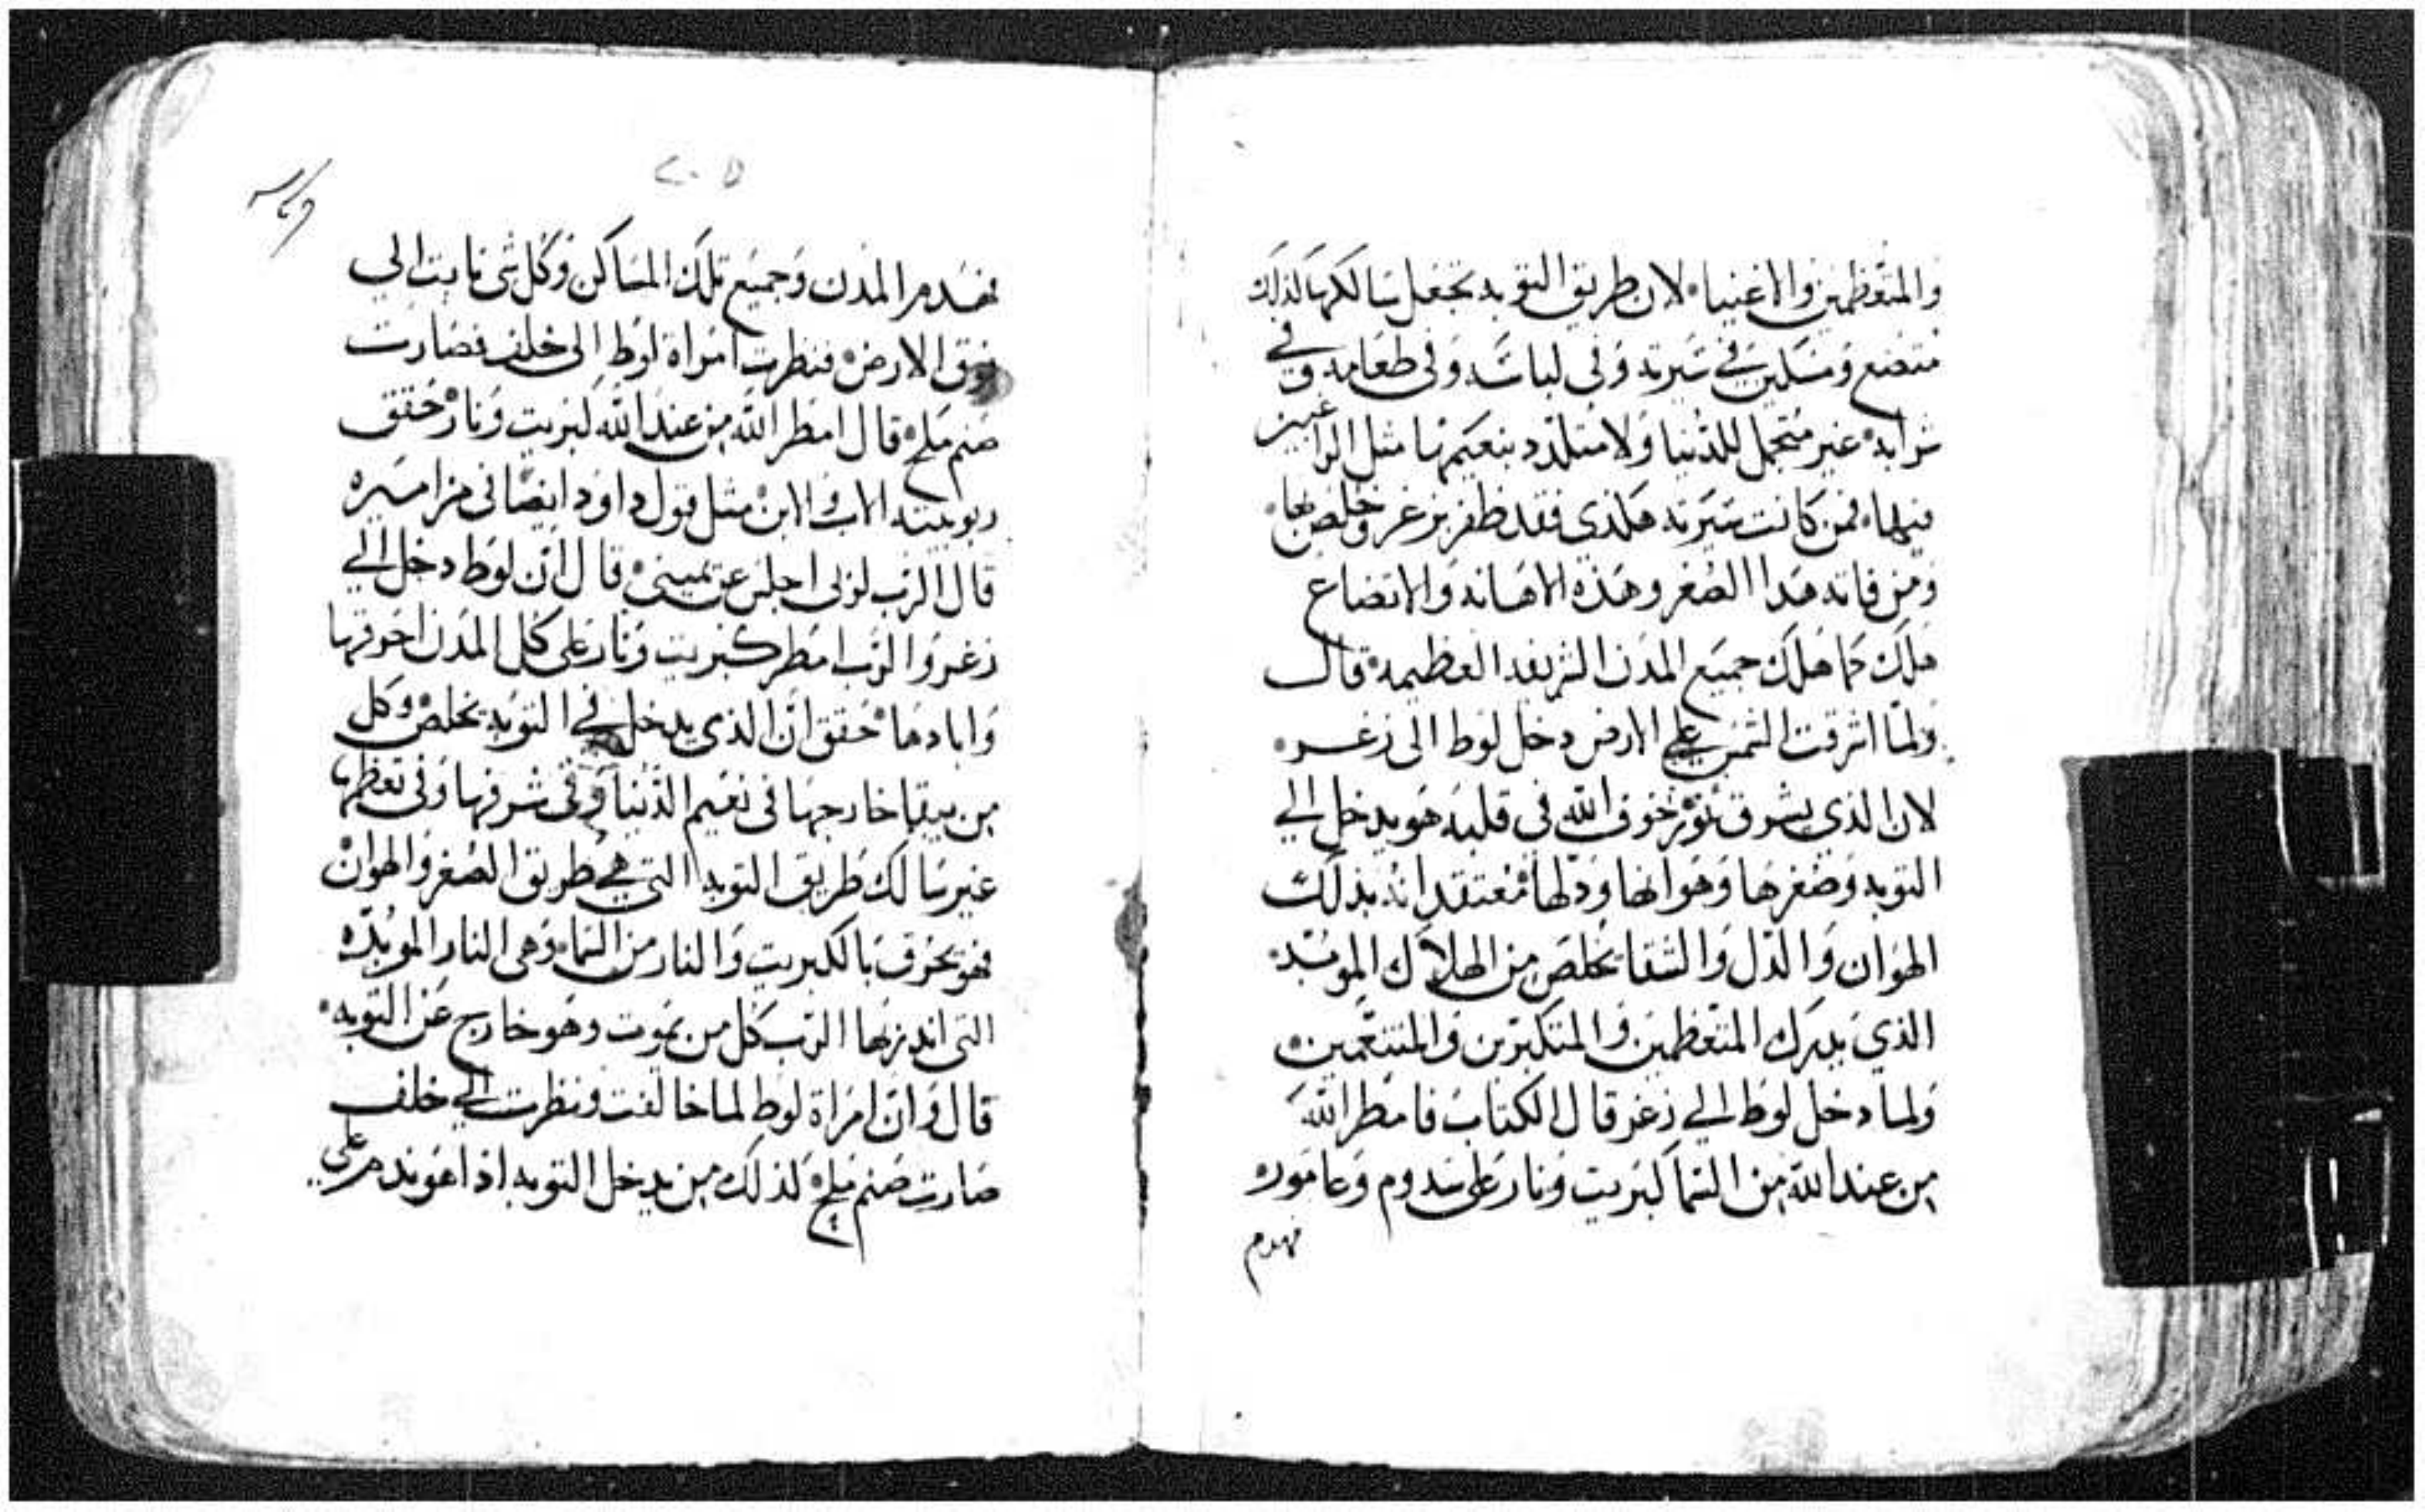 والمتعظمين والاغنياء لان طريق التوبه تجعل سالكها كذلك
متضع ومسكين في سيرته وفى لباسه وفى طعامه وفي
شرابه غير متجمل للدنيا ولا متلدد بنعيمها مثل الراغبين
فيها فمن كانت سيرته هكذى فقد ظفر بزغر وخلص بها
ومن فاته هدا الصغر وهذه الاهانه والاتضاع
هلك كما هلك جميع المدن الشريفه العظيمه قال
ولما اشرقت الشمس علي الارض دخل لوط الى زغر
لان الذي يشرق نور خوف الله في قلبه هو يدخل الي
التوبه وصغرها وهوانها ودلها معتقد انه بذلك
الهوان والدل والشقا يخلص من الهلاك الموبد
الذي يدرك المتعظمين والمتكبرين والمتنعمين
ولما دخل لوط الي زغر قال الكتاب فامطر الله
من عند الله من السما كبريت ونار على سدوم وعاموره
فهدم
فهدم المدن وجميع تلك المساكن وكل شى نابت الي
فوق الارض فنظرت امراة لوط الى خلف فصارت
صنم ملح قال امطر الله من عند الله كبريت ونار حقق
ربوبيته الاب والابن مثل قول داود ايضا فى مزاميره
قال الرب لربى اجلس عن يمينى قال ان لوط دخل الي
زغر والرب امطر كبريت ونار على كل المدن احرقها
وابادها حقق ان الذى يدخل في التوبه يخلص وكل
من يبقا خارجها فى نعيم الدنيا وفى شرفها وفى تعظمها
غير سالك طريق التوبه التي هي طريق الصغر والهوان
فهو يحرق بالكبريت والنار من السما وهى النار الموبده
التى اندر بها الرب كل من يموت وهو خارج عن التوبه
قال وان امراة لوط لما خالفت ونظرت الي خلف
صارت صنم ملح كذلك من يدخل التوبه اذا هو ندم على